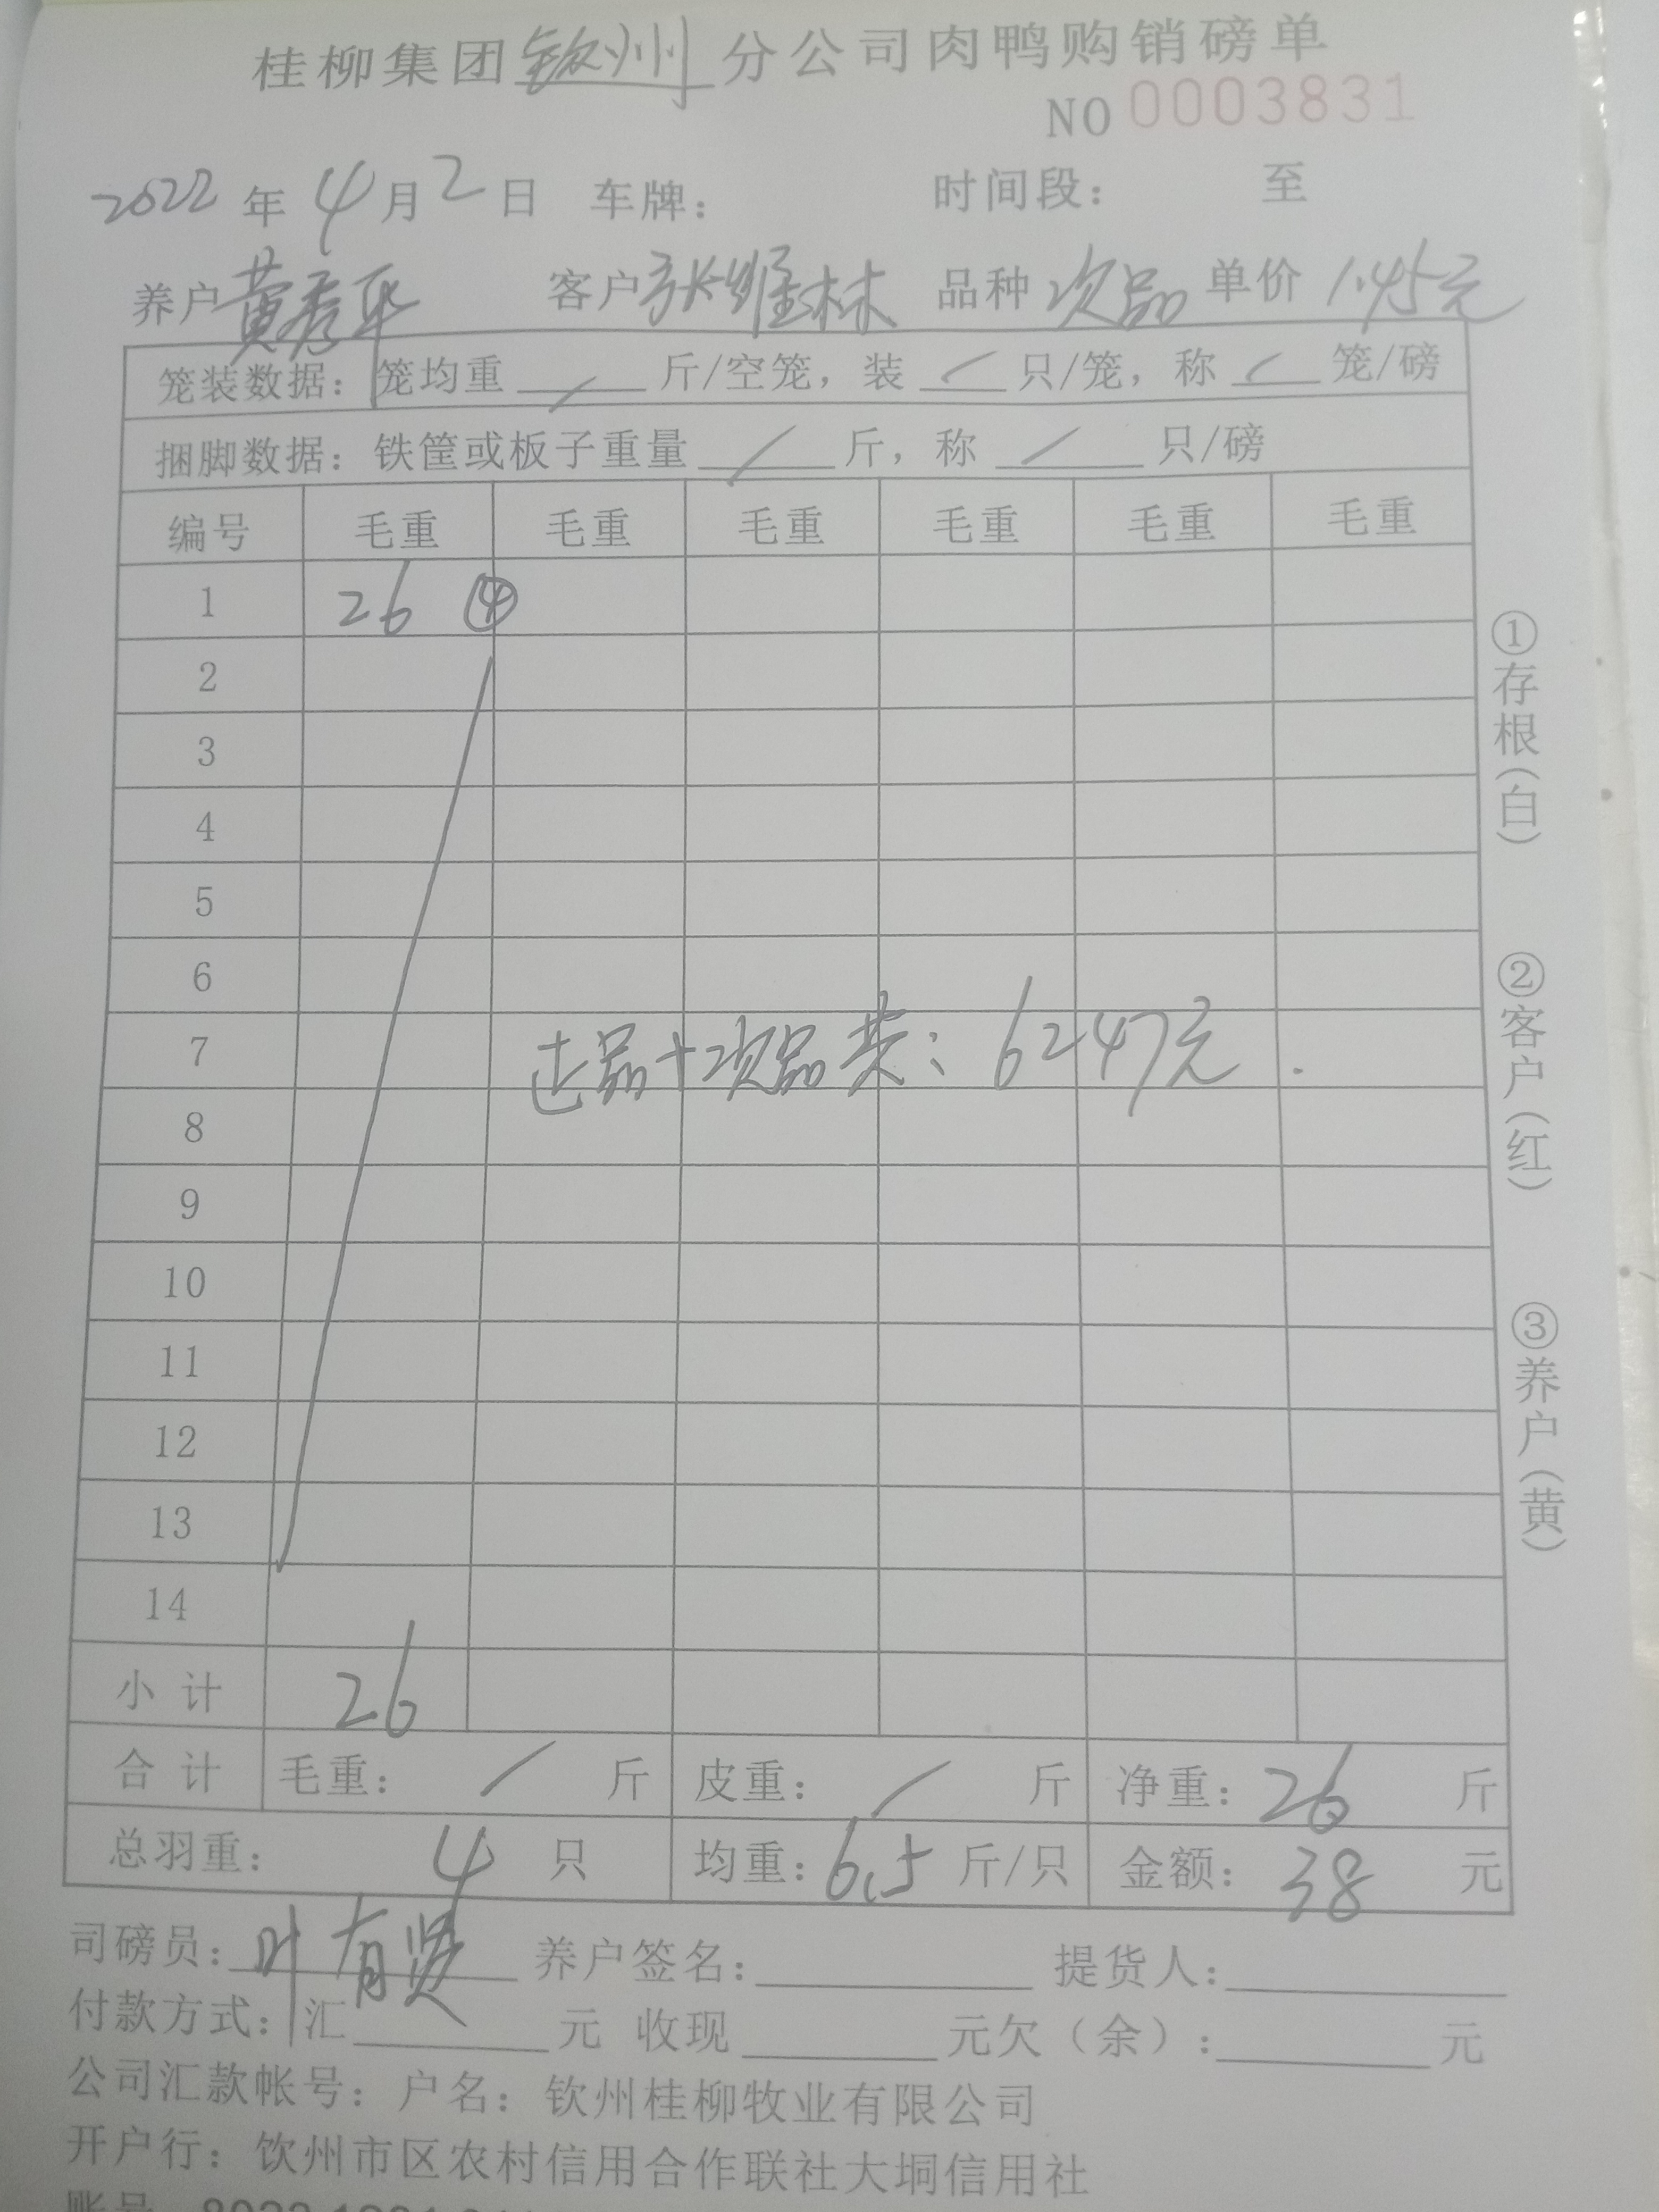 桂柳集团钦州分公司肉鸭购销磅单
NO 0003831
2022年4月2日 车牌： 时间段： 至
养户黄秀华 客户张维林 品种次品 单价1.45元
笼装数据：笼均重 / 斤/空笼，装 / 只/笼，称 / 笼/磅
捆脚数据：铁筐或板子重量 / 斤，称 / 只/磅
编号 毛重 毛重 毛重 毛重 毛重 毛重
1 26 ④
2
3
4
5
6
7 正品+次品共：6247元.
8
9
10
11
12
13
14
小计 26
合计 毛重： / 斤 皮重： / 斤 净重：26 斤
总羽重： 4 只 均重：6.5斤/只 金额：38 元
司磅员：叶有贤 养户签名： 提货人：
付款方式：汇 元 收现 元欠（余）： 元
公司汇款帐号：户名：钦州桂柳牧业有限公司
开户行：钦州市区农村信用合作联社大垌信用社
①存根（白）
②客户（红）
③养户（黄）